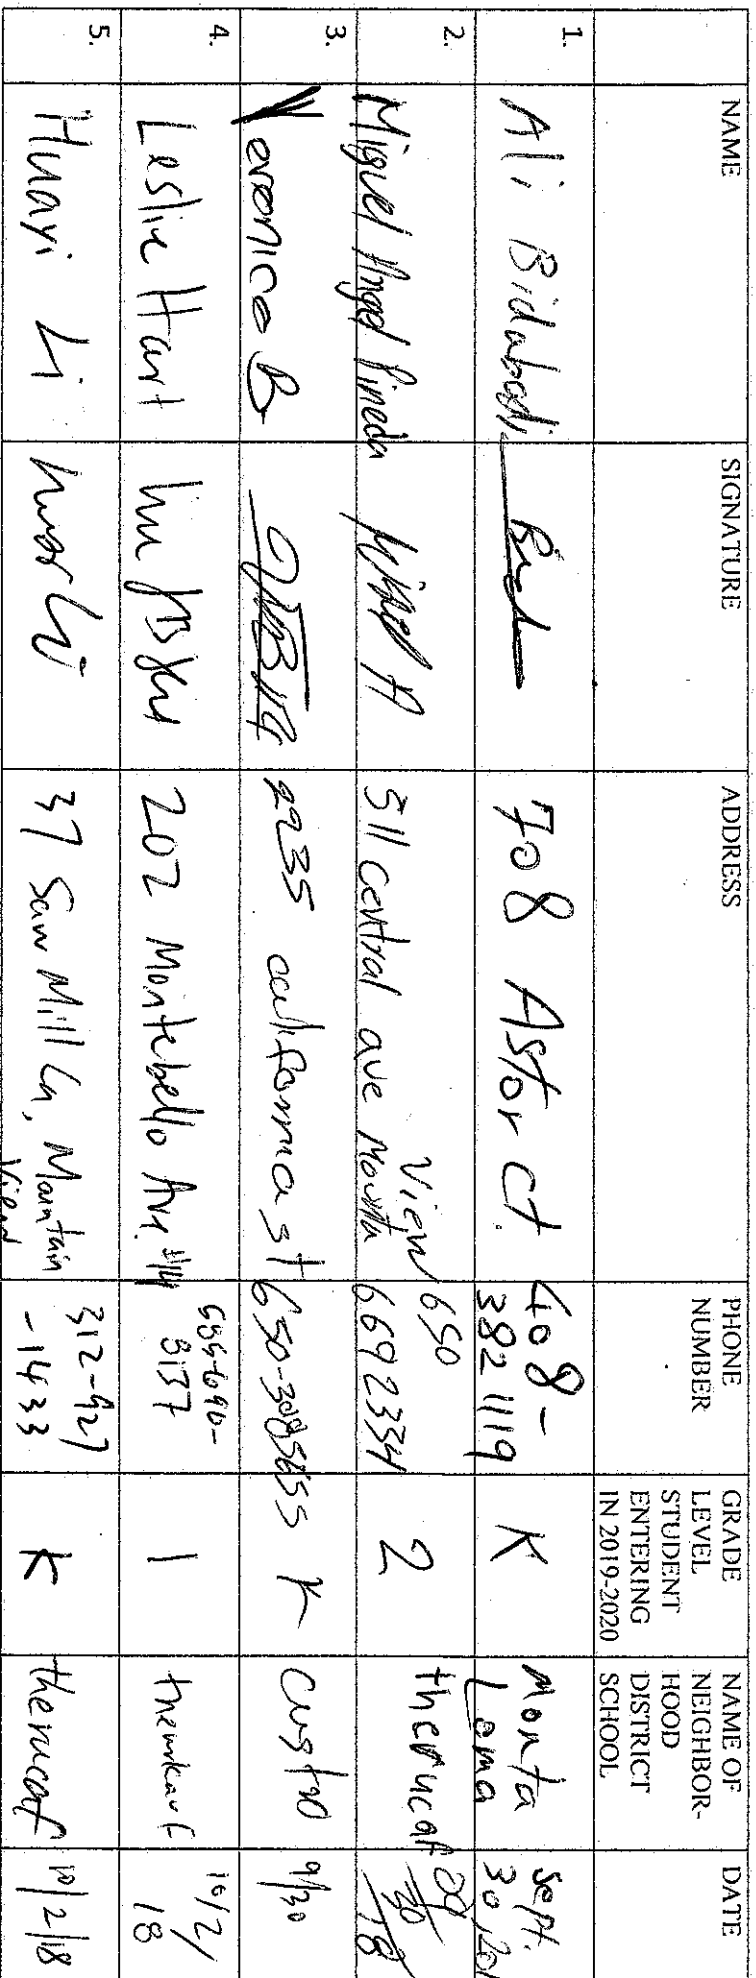 NAME SIGNATURE ADDRESS PHONE NUMBER GRADE LEVEL STUDENT ENTERING IN 2019-2020 NAME OF NEIGHBOR-HOOD DISTRICT SCHOOL DATE
1. Ali Bidabadi 708 Astor Ct 408-3821119 K Monta Loma Sept. 30, 201
2. Miguel Angel Pineda Miguel A 511 central ave Mounta View 650 6692334 2 therucaf 09/30/18
3. Veronica B 2235 california st K castro 9/30
4. Leslie Hart 202 Montebello Ave. 1 10/2/18
5. Huayi Li 37 Saw Mill Ln, Mountain View 312-927-1433 K therucaf 10/2/18